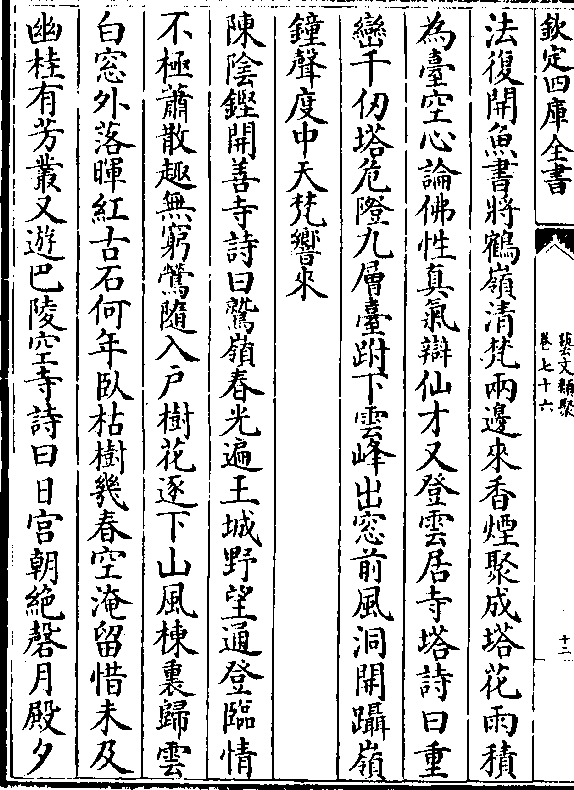 欽定四庫全書
藝文類聚
卷七十六
十二
法復開魚書將鶴嶺清梵兩邊來香煙聚成塔花雨積
為臺空心論佛性真氣辯仙才又登雲居寺塔詩曰重
巒千仞塔危隥九層臺跗下雲峰出窓前風洞開躡嶺
鐘聲度中天梵響來
陳陰鏗開善寺詩曰鷲嶺春光遍王城野望通登臨情
不極蕭散趣無窮鶯隨入戶樹花逐下山風棟裏歸雲
白窓外落暉紅古石何年臥枯樹幾春空淹留惜未及
幽桂有芳叢又遊巴陵空寺詩曰日宮朝絶磬月殿夕